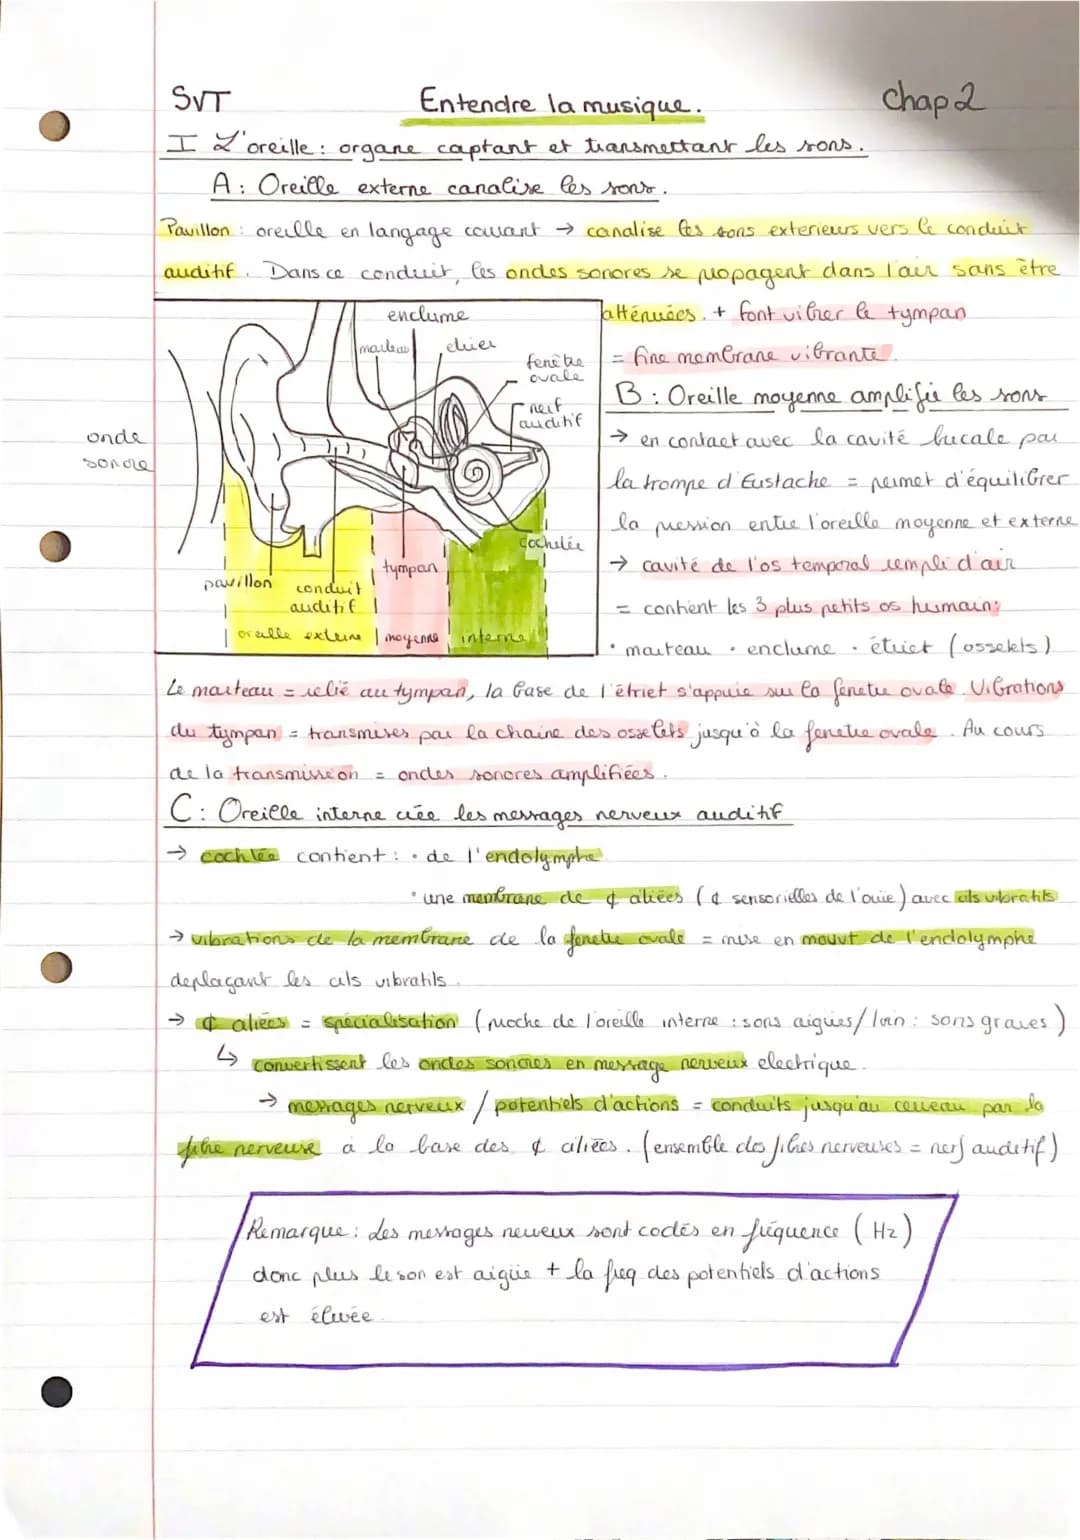 SVT
Entendre la musique.
chap 2
I L'oreille : organe captant et transmettant les sons.
A : Oreille externe canalise les sons.
Pavillon : oreille en langage courant → canalise les sons exterieurs vers le conduit
auditif. Dans ce conduit, les ondes sonores se propagent dans l'air sans être
atténuées. + font vibrer le tympan
= fine membrane vibrante.
enclume
marteau
etrier
fenêtre
ovale
nerf
auditif
onde
sonore
cochelée
tympan
pavillon
conduit
auditif
oreille externe
moyenne
interne
B : Oreille moyenne amplifie les sons
→ en contact avec la cavité bucale par
la trompe d'Eustache = permet d'équilibrer
la pression entre l'oreille moyenne et externe
→ cavité de l'os temporal rempli d'air
= contient les 3 plus petits os humain:
• marteau • enclume • étriet (osselets)
Le marteau = relié au tympan, la base de l'étriet s'appuie sur la fenetre ovale. Vibrations
du tympan = transmises par la chaine des osselets jusqu'à la fenetre ovale. Au cours
de la transmission = ondes sonores amplifiées.
C : Oreille interne crée les messages nerveux auditif
→ cochlée contient : • de l'endolymphe
• une membrane de ¢ ciliées (¢ sensorielles de l'ouïe) avec cils vibratils
→ vibrations de la membrane de la fenetre ovale = mise en mouvt de l'endolymphe
deplaçant les cils vibratils.
→ ¢ ciliées = spécialisation (proche de l'oreille interne : sons aigües / loin : sons graves)
↳ convertissent les ondes sonores en message nerveux electrique.
→ messages nerveux / potentiels d'actions = conduits jusqu'au cerveau par la
fibre nerveuse à la base des ¢ ciliées. (ensemble des fibres nerveuses = nerf auditif)
Remarque : Les messages nerveux sont codés en fréquence (Hz)
donc plus le son est aigüe + la freq des potentiels d'actions
est élevée.